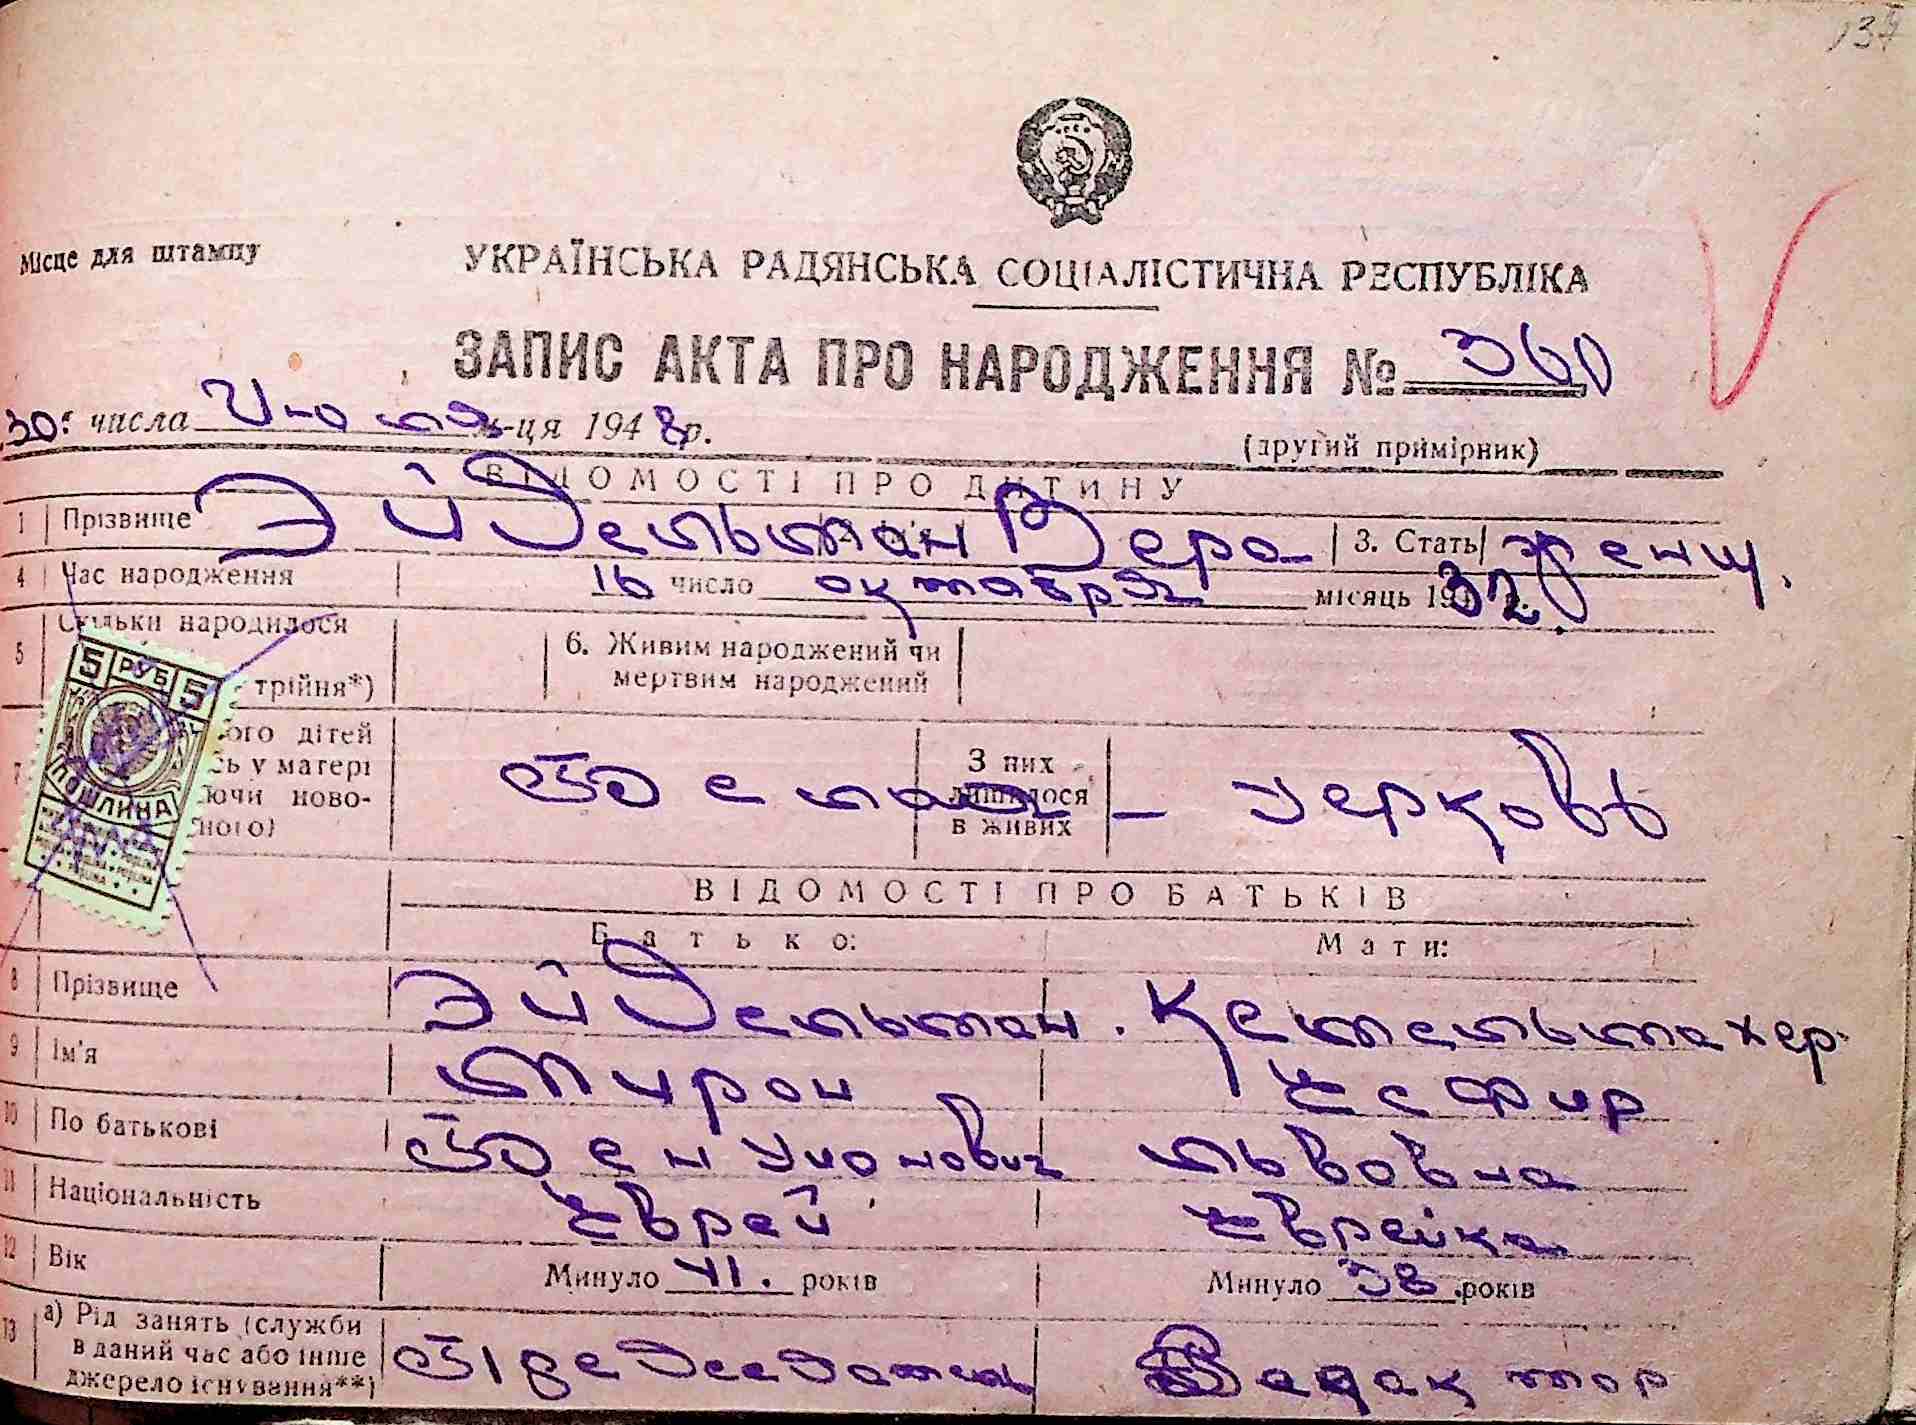 134
Місце для штампу
УКРАЇНСЬКА РАДЯНСЬКА СОЦІАЛІСТИЧНА РЕСПУБЛІКА
ЗАПИС АКТА ПРО НАРОДЖЕННЯ № 360
30. числа м-ця 1948 р.
(другий примірник)
ВІДОМОСТІ ПРО ДИТИНУ
1 Прізвище Эйдельман Вера 3. Стать женщ.
4 Час народження 16 число октября місяць 1932 р.
5 Скільки народилося трійня*) 6. Живим народжений чи мертвим народжений
7 дітей у матері З них лишилося в живих
ВІДОМОСТІ ПРО БАТЬКІВ
Батько: Мати:
8 Прізвище Эйдельман Кетельмахер
9 Ім'я Мирон Есфир
10 По батькові Львовна
11 Національність Еврей Еврейка
12 Вік Минуло 41. років Минуло 38 років
13 а) Рід занять (служби в даний час або інше джерело існування**)
5 РУБ 5
ПОШЛИНА